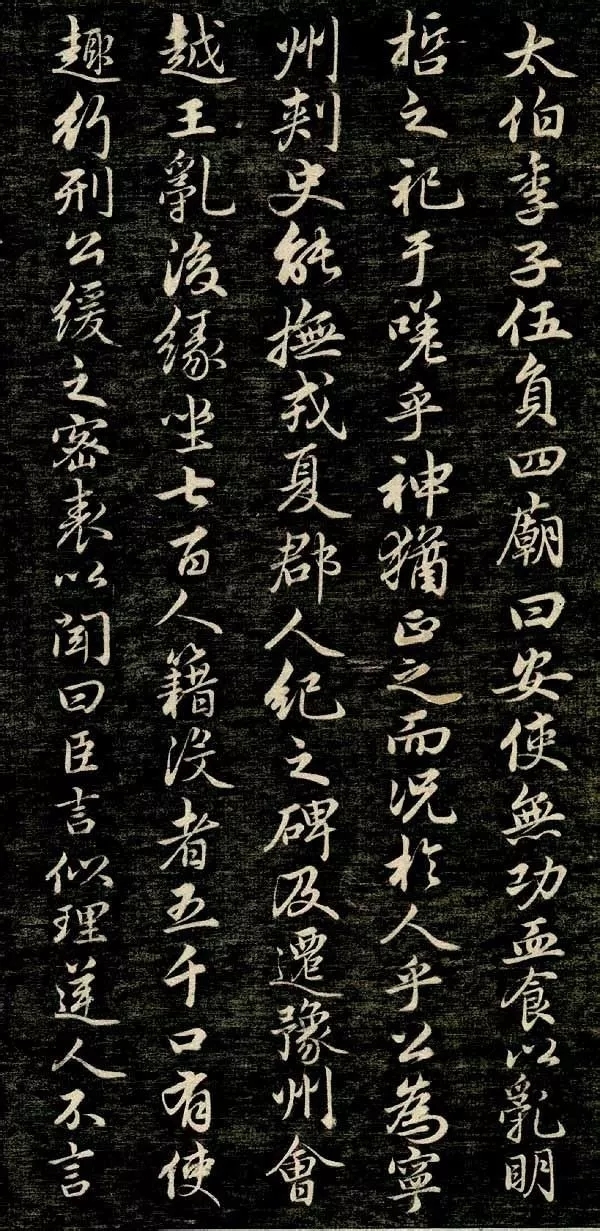 太伯季子伍員四廟曰安使無功血食以亂明
哲之祀于嗟乎神猶正之而况於人乎公為寧
州刺史能撫戎夏郡人紀之碑及遷豫州會
越王亂後緣坐七百人籍没者五千口有使
趣行刑公緩之密表以聞曰臣言似理逆人不言